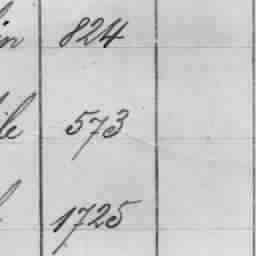 in 824
ile 573
1725